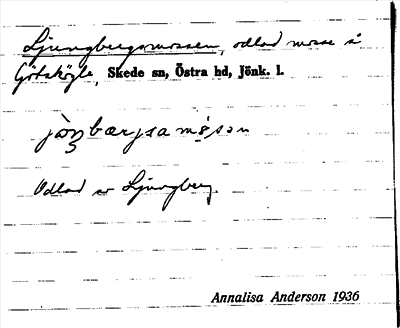 Ljungbergsmossen, odlad mosse å
Götshögle, Skede sn, Östra hd, Jönk. l.
Odlad av Ljungberg.
Annalisa Anderson 1936